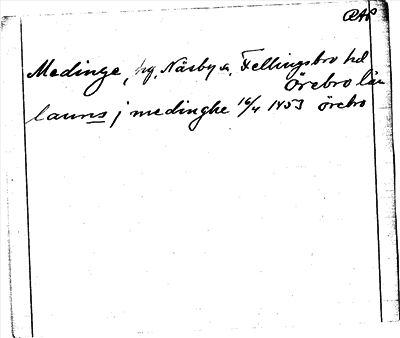 RAP
Medinge, hg, Näsby s, Fellingsbro hd
Örebro län
laurns j medinghe 16/4 1453 Örebro